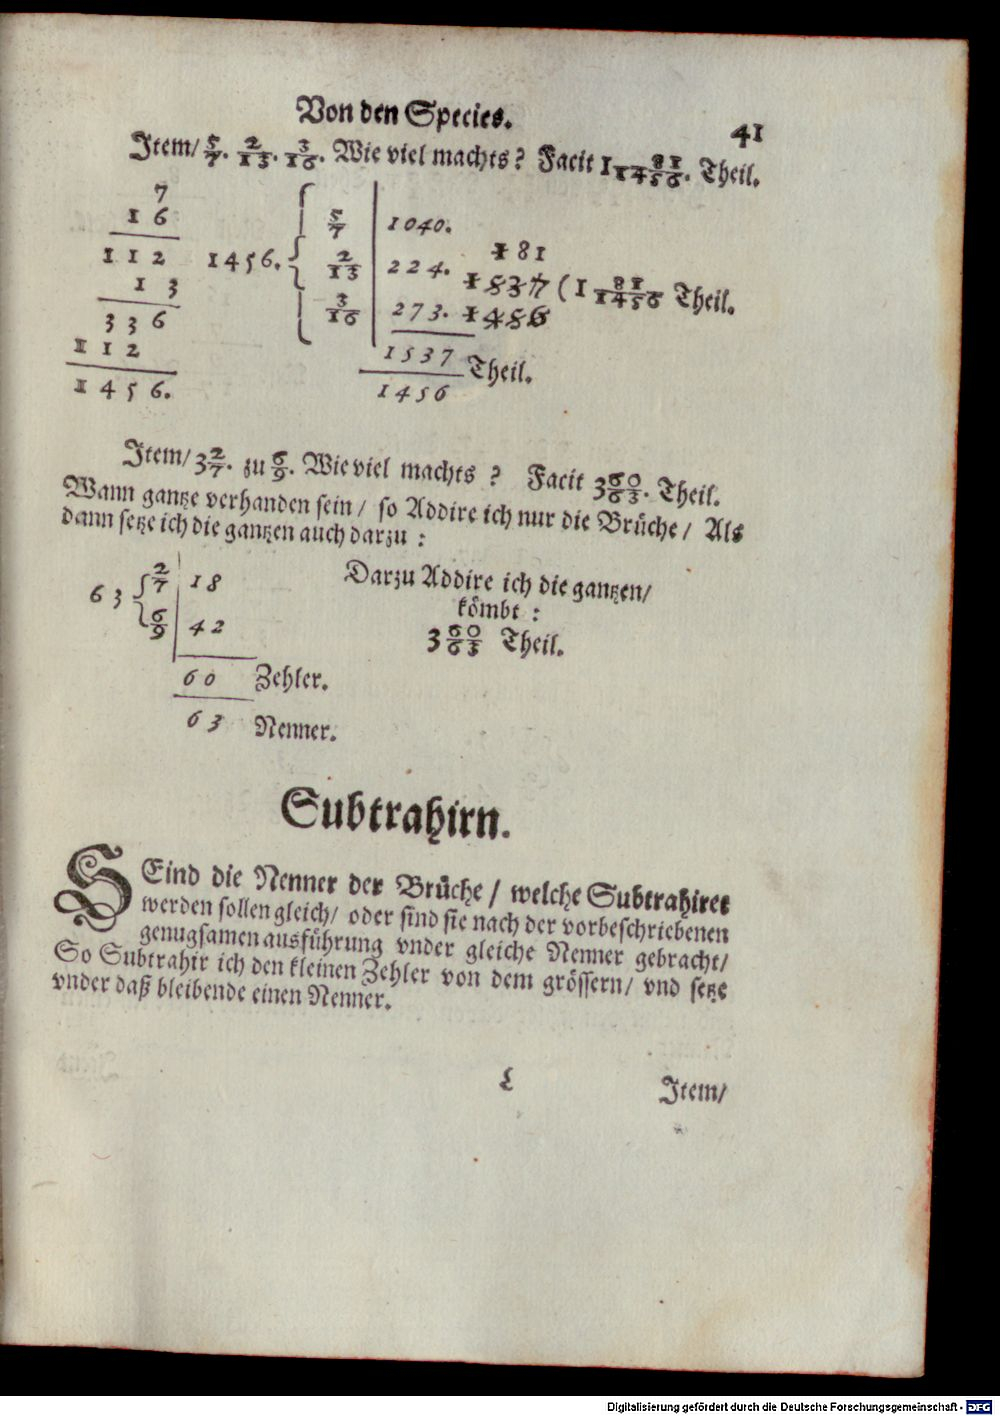 Von den Species. 41
Item/ 5/7. 2/13. 3/16. Wie viel machts? Facit 1 81/1456. Theil.
7
1 6
1 1 2
1 3
3 3 6
1 1 2
1 4 5 6.
1456. { 5/7 | 1040.
2/13 | 224.
3/16 | 273.
1537
1456 Theil.
1 81
1537 (1 81/1456 Theil.
1456
Item/ 3 2/7. zu 6/9. Wie viel machts? Facit 3 60/63. Theil.
Wann gantze verhanden sein/ so Addire ich nur die Brüche/ Als
dann setze ich die gantzen auch darzu :
63 { 2/7 | 18
6/9 | 42
60 Zehler.
63 Nenner.
Darzu Addire ich die gantzen/
kömbt :
3 60/63 Theil.
Subtrahirn.
SEind die Nenner der Brüche/ welche Subtrahiret
werden sollen gleich/ oder sind sie nach der vorbeschriebenen
genugsamen ausführung vnder gleiche Nenner gebracht/
So Subtrahir ich den kleinen Zehler von dem grössern/ vnd setze
vnder daß bleibende einen Nenner.
L Item/
Digitalisierung gefördert durch die Deutsche Forschungsgemeinschaft - DFG